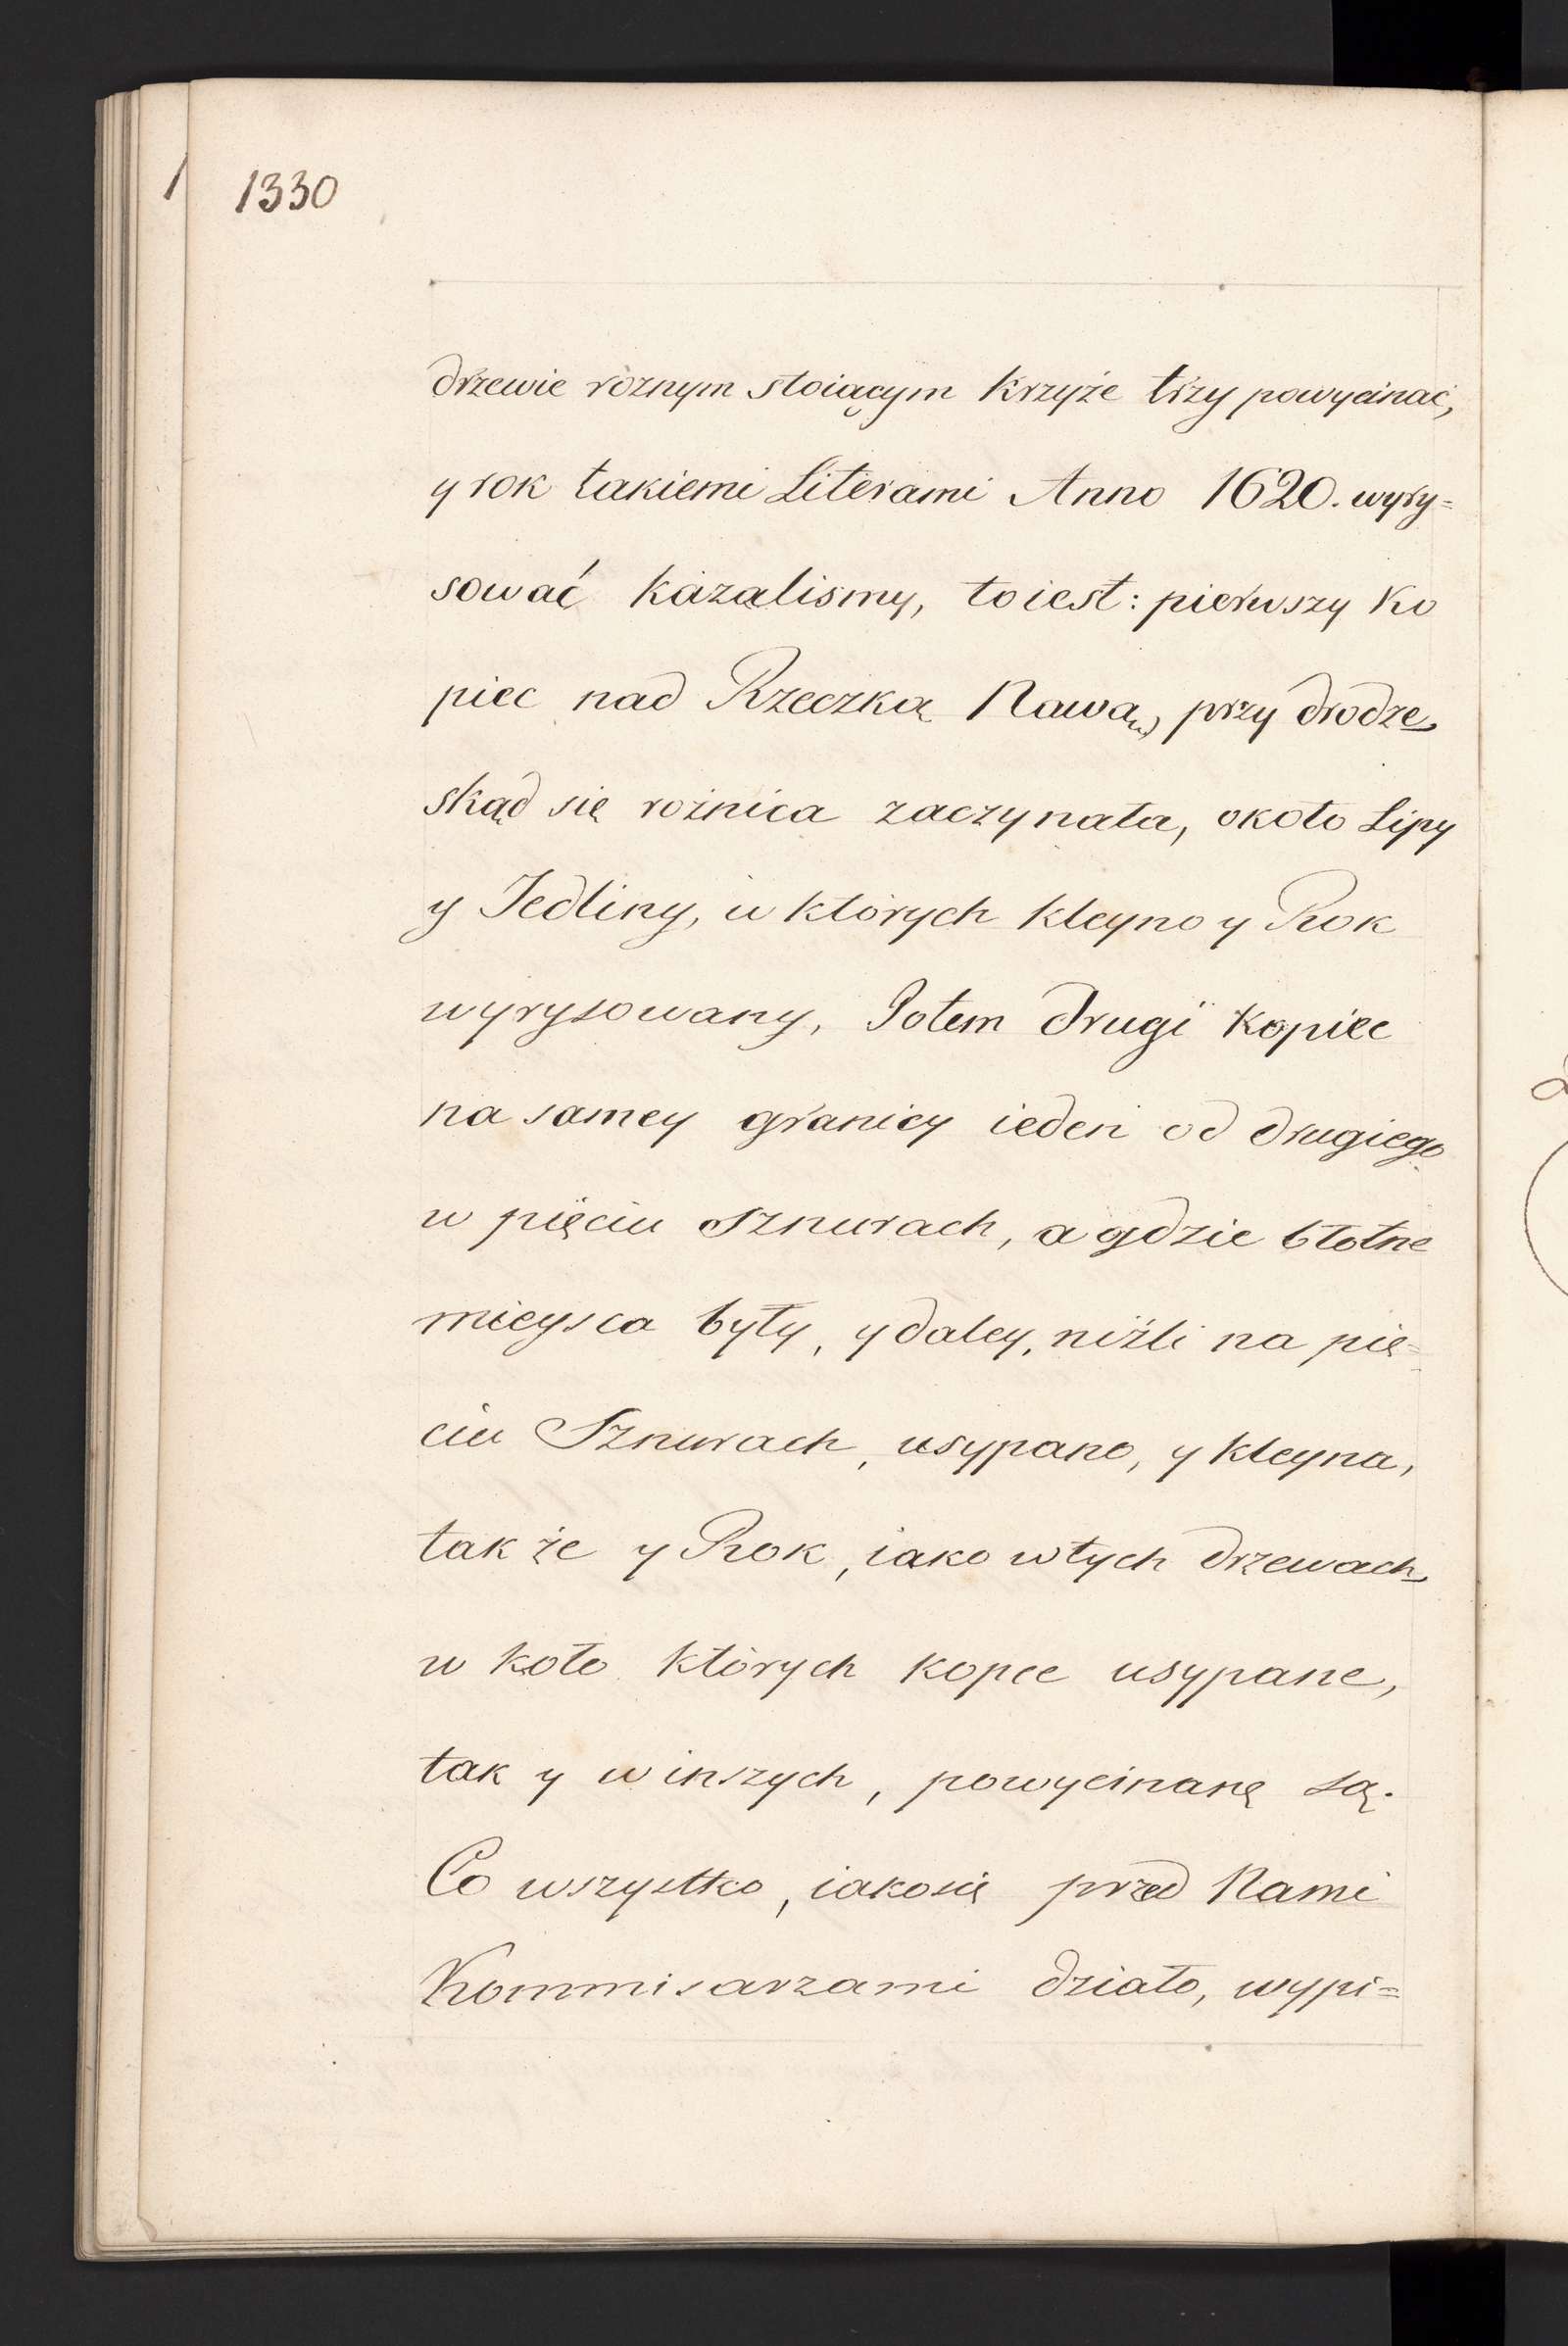 1330
drzewie roznym stoiącym Krzyże trzy powycinać,
y rok takiemi Literami Anno 1620. wyry=
sować kazalismy, toiest: pierwszy Ko
piec nad Rzeczką Nawą, przy drodze
skąd się rożnica zaczynała, około Lipy
y Jedliny, w których kleyno y Rok
wyrysowany, Potem drugi kopiec
na samey granicy ieden od drugiego
w pięciu Sznurach, a gdzie błotne
mieysca były, y daley, niżli na pię=
ciu Sznurach, usypano, y kleyna,
tak że y Rok, iako wtych drzewach
w koło których kopce usypane,
tak y winszych, powycinanę są.
Co wszystko, iakosię przed Nami
Kommisarzami działo, wypi=